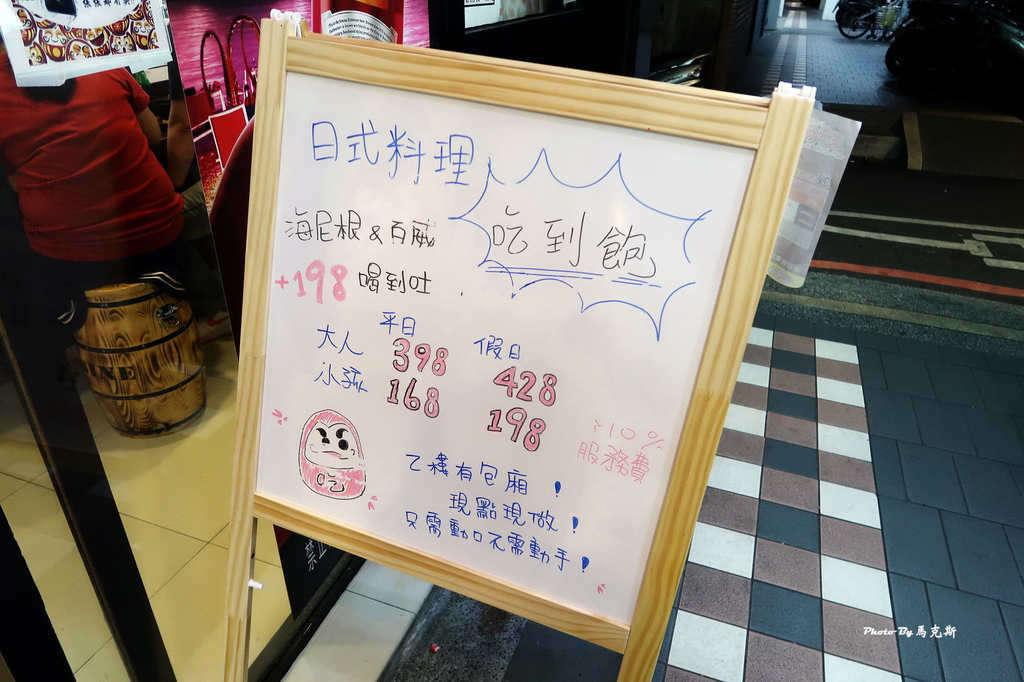 日式料理
吃到飽
海尼根&百威
+198 喝到吐
平日 假日
大人 398 428
小孩 168 198
+10%
服務費
乙樓有包廂!
現點現做!
只需動口不需動手!
禁止
Photo By 馬克斯